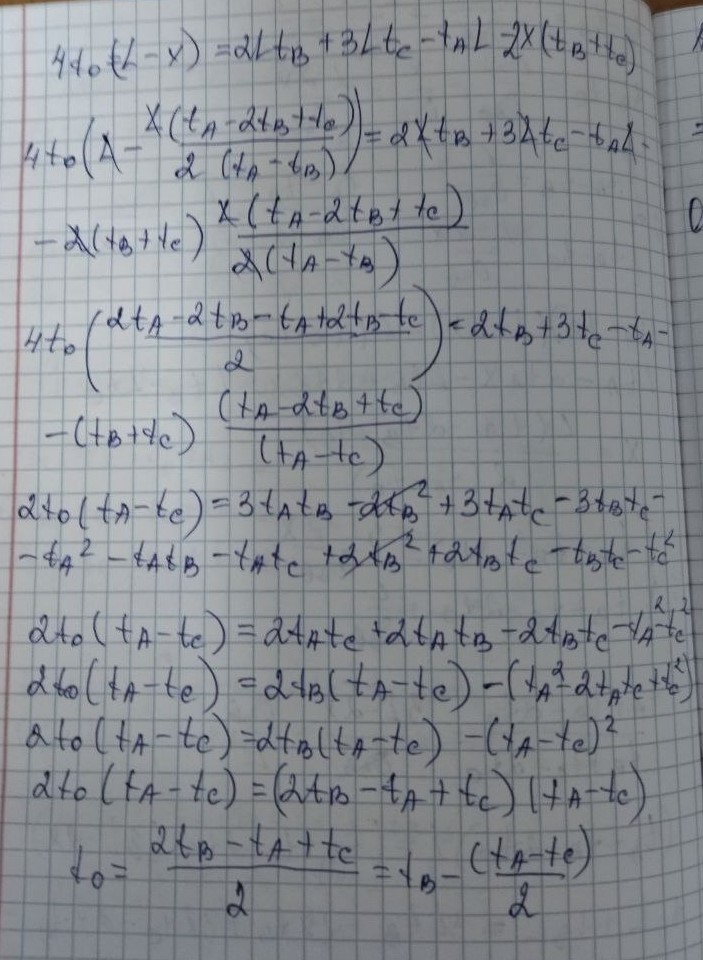 4t₀(L - x) = 2Lt_B + 3Lt_C - t_A L - 2x(t_B + t_C)
4t₀(L - L(t_A - 2t_B + t_C) / 2(t_A - t_B)) = 2Lt_B + 3Lt_C - t_A L -
- 2(t_B + t_C) L(t_A - 2t_B + t_C) / 2(t_A - t_B)
4t₀((2t_A - 2t_B - t_A + 2t_B - t_C) / 2) = 2t_B + 3t_C - t_A -
- (t_B + t_C) (t_A - 2t_B + t_C) / (t_A - t_C)
2t₀(t_A - t_C) = 3t_A t_B - 2t_B² + 3t_A t_C - 3t_B t_C -
- t_A² - t_A t_B - t_A t_C + 2t_B² + 2t_B t_C - t_B t_C - t_C²
2t₀(t_A - t_C) = 2t_A t_C + 2t_A t_B - 2t_B t_C - t_A² - t_C²
2t₀(t_A - t_C) = 2t_B(t_A - t_C) - (t_A² - 2t_A t_C + t_C²)
2t₀(t_A - t_C) = 2t_B(t_A - t_C) - (t_A - t_C)²
2t₀(t_A - t_C) = (2t_B - t_A + t_C)(t_A - t_C)
t₀ = (2t_B - t_A + t_C) / 2 = t_B - (t_A - t_C) / 2